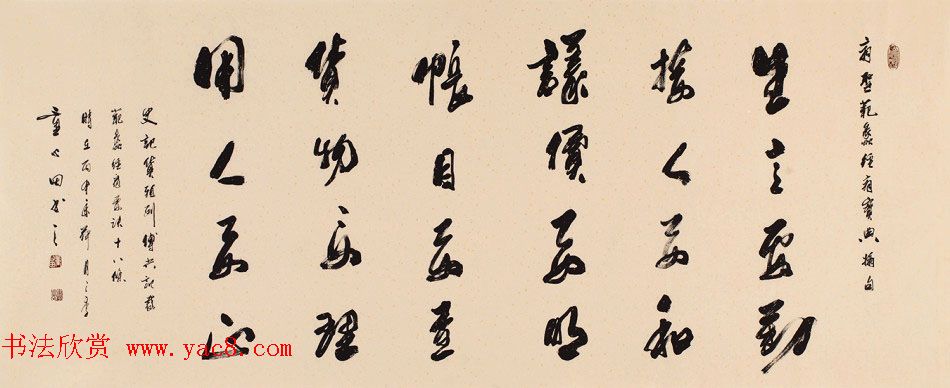 商圣范蠡经商宝典摘句
生意要勤
接人要和
議價要明
帳目要查
貨物要理
用人要正
史記貨殖列傳共記載
范蠡經商要訣十八條
時在丙申年荷月之春
書之
书法欣赏 www.yac8.com